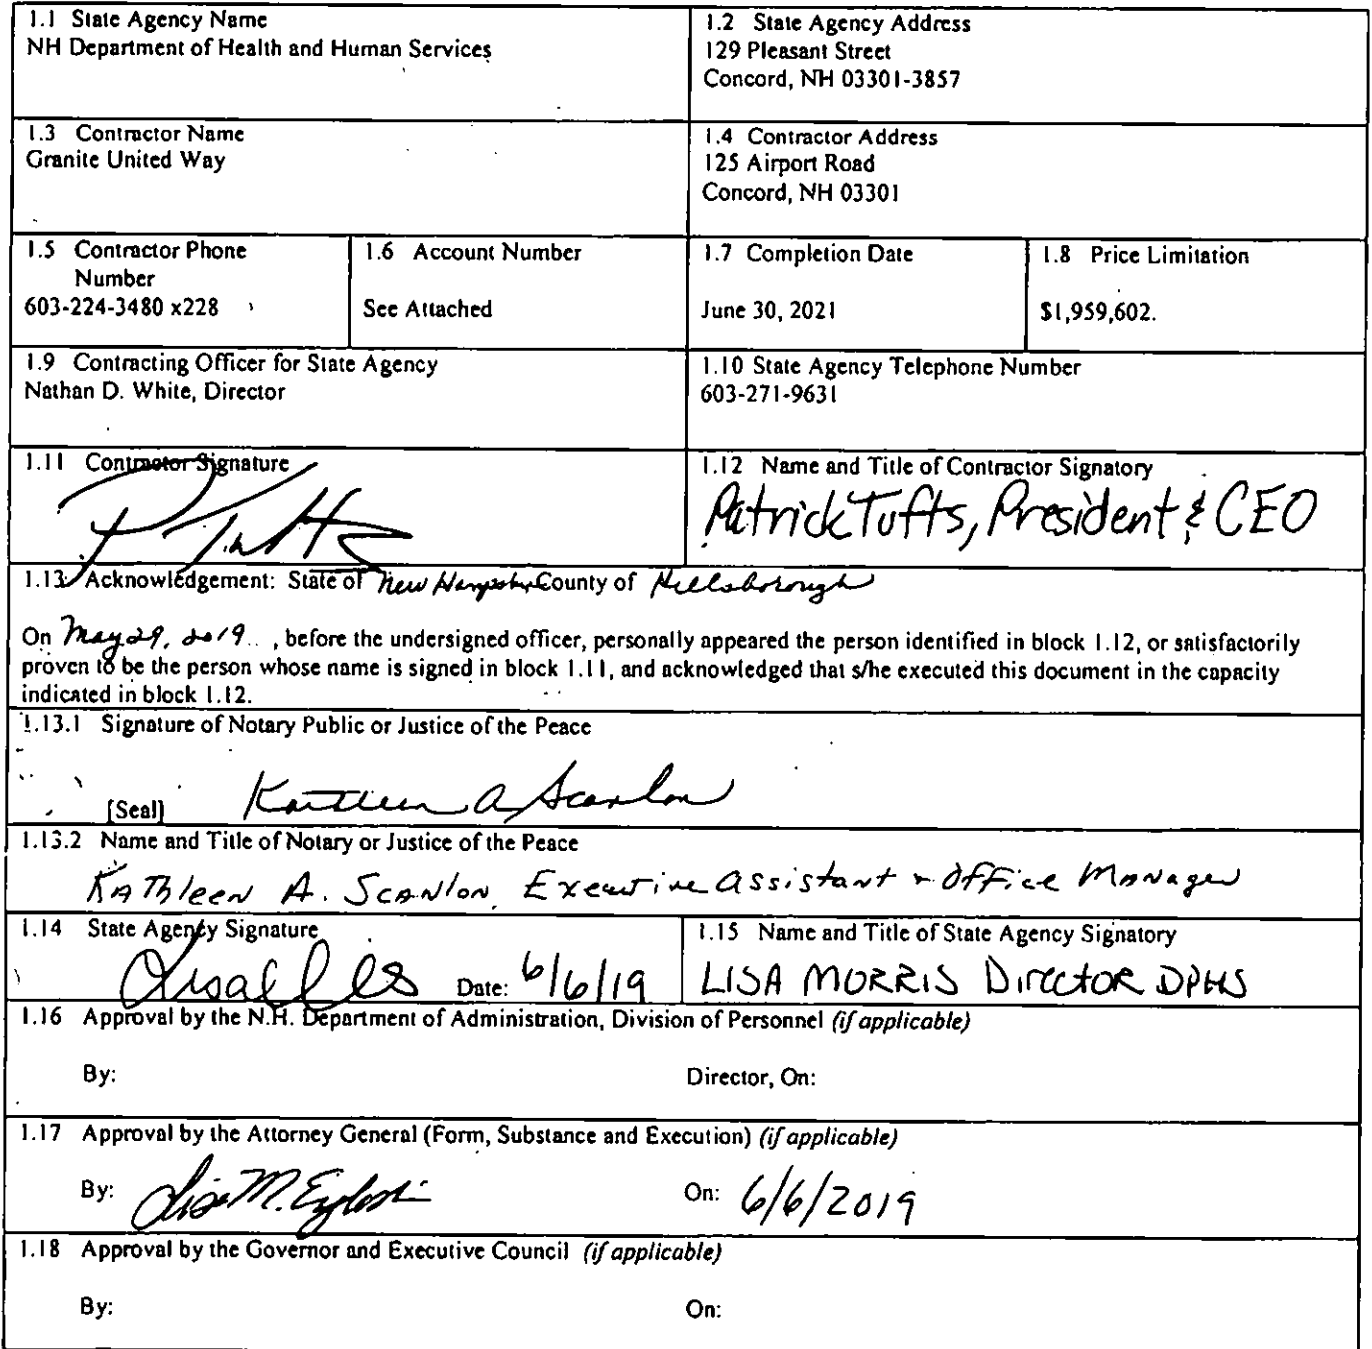 1.1 State Agency Name
NH Department of Health and Human Services
1.2 State Agency Address
129 Pleasant Street
Concord, NH 03301-3857
1.3 Contractor Name
Granite United Way
1.4 Contractor Address
125 Airport Road
Concord, NH 03301
1.5 Contractor Phone
Number
603-224-3480 x228
1.6 Account Number
See Attached
1.7 Completion Date
June 30, 2021
1.8 Price Limitation
$1,959,602.
1.9 Contracting Officer for State Agency
Nathan D. White, Director
1.10 State Agency Telephone Number
603-271-9631
1.11 Contractor Signature
1.12 Name and Title of Contractor Signatory
Patrick Tufts, President & CEO
1.13 Acknowledgement: State of New Hampshire County of Hillsborough
On May 29, 2019 , before the undersigned officer, personally appeared the person identified in block 1.12, or satisfactorily
proven to be the person whose name is signed in block 1.11, and acknowledged that s/he executed this document in the capacity
indicated in block 1.12.
1.13.1 Signature of Notary Public or Justice of the Peace
[Seal] Kathleen A Scanlon
1.13.2 Name and Title of Notary or Justice of the Peace
Kathleen A. Scanlon, Executive Assistant + Office Manager
1.14 State Agency Signature
Date: 6/6/19
1.15 Name and Title of State Agency Signatory
LISA MORRIS Director DPHS
1.16 Approval by the N.H. Department of Administration, Division of Personnel (if applicable)
By: Director, On:
1.17 Approval by the Attorney General (Form, Substance and Execution) (if applicable)
By: On: 6/6/2019
1.18 Approval by the Governor and Executive Council (if applicable)
By: On: